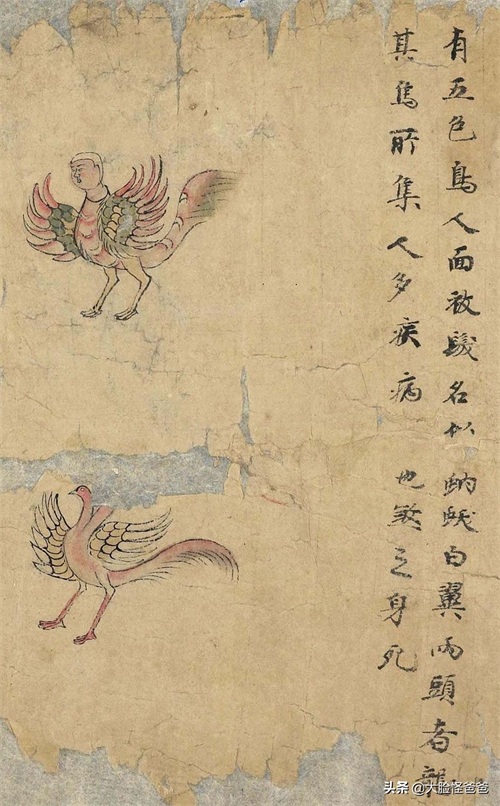 有五色鳥人面被髮名似白翼兩頭者
其鳥所集人多疾病 也煞之身死
头条 @大脸怪爸爸